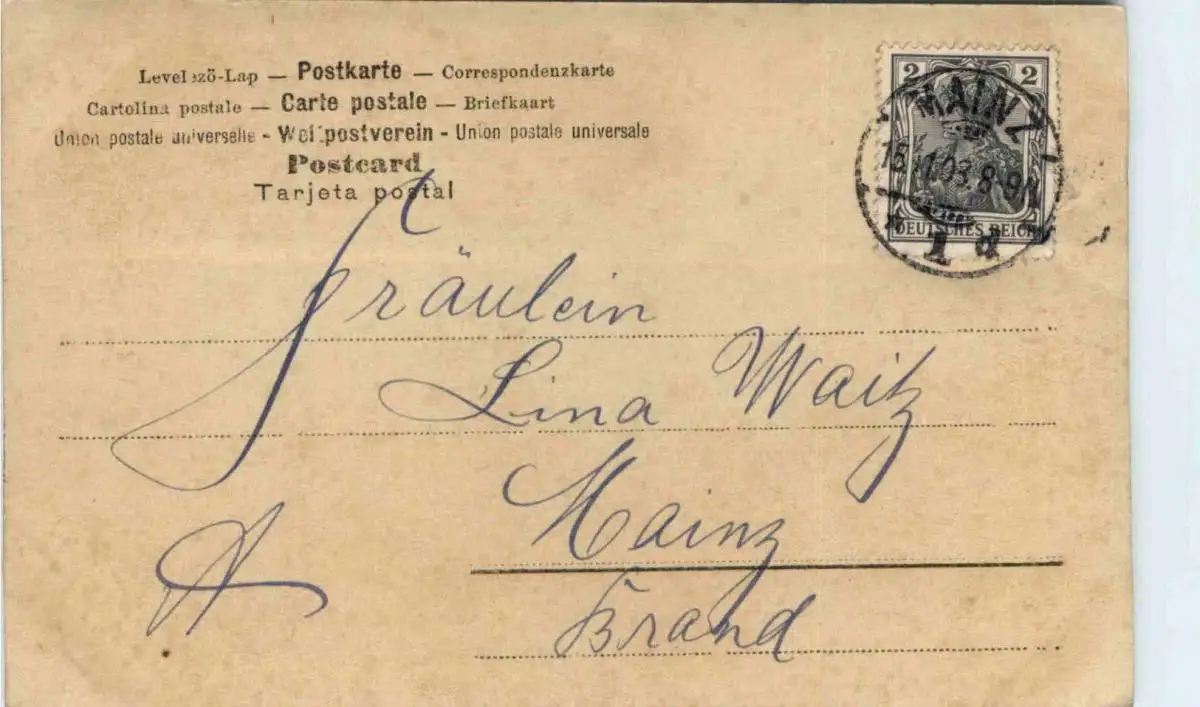 Levelező-Lap — Postkarte — Correspondenzkarte
Cartolina postale — Carte postale — Briefkaart
Union postale universelle - Weltpostverein - Union postale universale
Postcard
Tarjeta postal
2 2
MAINZ
8-9N
1 d
DEUTSCHES REICH
Fräulein
Lina Waitz
Mainz
Brand